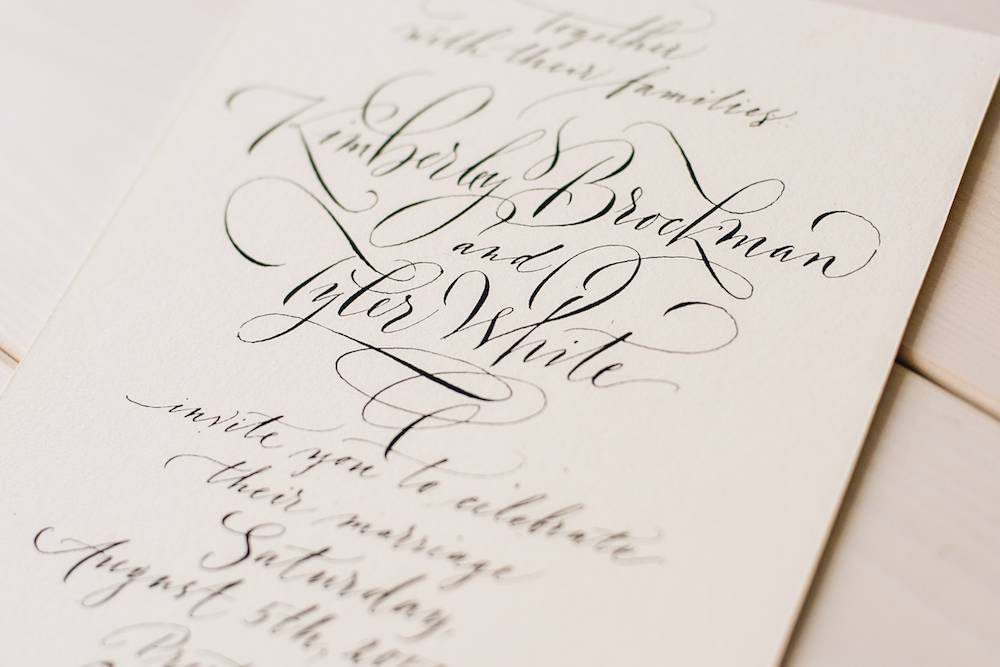 Together
with their families
Kimberley Brockman
and
Tyler White
invite you to celebrate
their marriage
Saturday,
August 5th,